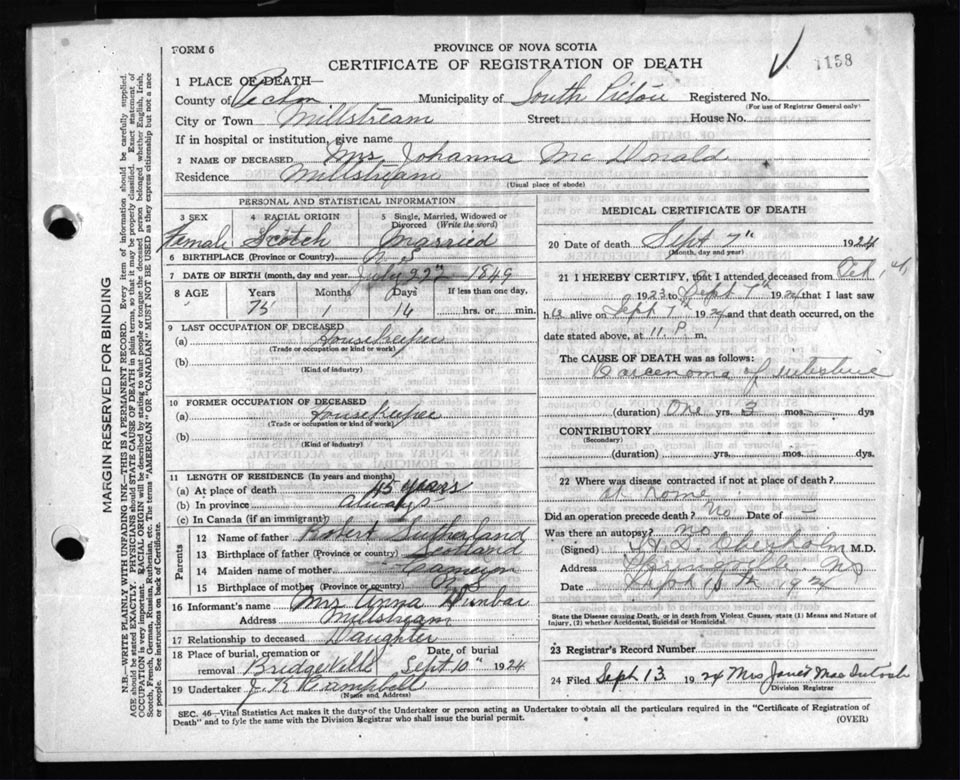 FORM 6
PROVINCE OF NOVA SCOTIA
CERTIFICATE OF REGISTRATION OF DEATH
1158
1 PLACE OF DEATH
County of Municipality of South Pictou Registered No.
(For use of Registrar General only)
City or Town Millstream Street House No.
If in hospital or institution, give name
2 NAME OF DECEASED Mrs Johanna Mc Donald
Residence Millstream
(Usual place of abode)
PERSONAL AND STATISTICAL INFORMATION
3 SEX 4 RACIAL ORIGIN 5 Single, Married, Widowed or Divorced (Write the word)
Female Scotch Married
6 BIRTHPLACE (Province or Country) N.S
7 DATE OF BIRTH (month, day and year. July 22" 1849
8 AGE Years Months Days If less than one day,
75 1 14 hrs. or min.
9 LAST OCCUPATION OF DECEASED
(a) Housekeeper
(Trade or occupation or kind of work)
(b)
(Kind of industry)
10 FORMER OCCUPATION OF DECEASED
(a) Housekeeper
(Trade or occupation or kind of work)
(b)
(Kind of industry)
11 LENGTH OF RESIDENCE (In years and months)
(a) At place of death 45 years
(b) In province always
(c) In Canada (if an immigrant)
Parents
12 Name of father Robert Sutherland
13 Birthplace of father (Province or country) Scotland
14 Maiden name of mother Cameron
15 Birthplace of mother (Province or country) N.S
16 Informant's name Mrs Anna Dunbar
Address Millstream
17 Relationship to deceased Daughter
18 Place of burial, cremation or removal Bridgeville Date of burial Sept 10" 1924
19 Undertaker J. K Campbell
(Name and Address)
MEDICAL CERTIFICATE OF DEATH
20 Date of death Sept 7" 1924
(Month, day and year)
21 I HEREBY CERTIFY, that I attended deceased from Oct,
1923 to Sept 7th 1924 that I last saw
h alive on Sept 7 1924 and that death occurred, on
date stated above, at 11. P. m.
The CAUSE OF DEATH was as follows:
Carcenoma of intestine
(duration) One yrs. 3 mos. dys
CONTRIBUTORY
(Secondary)
(duration) yrs. mos. dys.
22 Where was disease contracted if not at place of death?
at home
Did an operation precede death? No Date of –
Was there an autopsy? No
(Signed) M.D.
Address NS
Date Sept 10th 1924
State the Disease causing Death, or in death from Violent Causes, state (1) Means and Nature of
Injury, (2) whether Accidental, Suicidal or Homicidal.
23 Registrar's Record Number
24 Filed Sept 13 1924 Mrs Janet MacIntosh
Division Registrar
SEC. 46—Vital Statistics Act makes it the duty of the Undertaker or person acting as Undertaker to obtain all the particulars required in the "Certificate of Registration of
Death" and to fyle the same with the Division Registrar who shall issue the burial permit. (OVER)
MARGIN RESERVED FOR BINDING
N.B.—WRITE PLAINLY WITH UNFADING INK—THIS IS A PERMANENT RECORD. Every item of information should be carefully supplied.
AGE should be stated EXACTLY. PHYSICIANS should STATE CAUSE OF DEATH in plain terms, so that it may be properly classified. Exact statement of
OCCUPATION is very important. RACIAL ORIGIN will be described by stating to what people or tongue the deceased person belonged whether English, Irish,
Scotch, French, German, Russian, Ruthenian, etc. The terms "AMERICAN" OR "CANADIAN" MUST NOT BE USED as they express citizenship but not a race
or people. See instructions on back of Certificate.